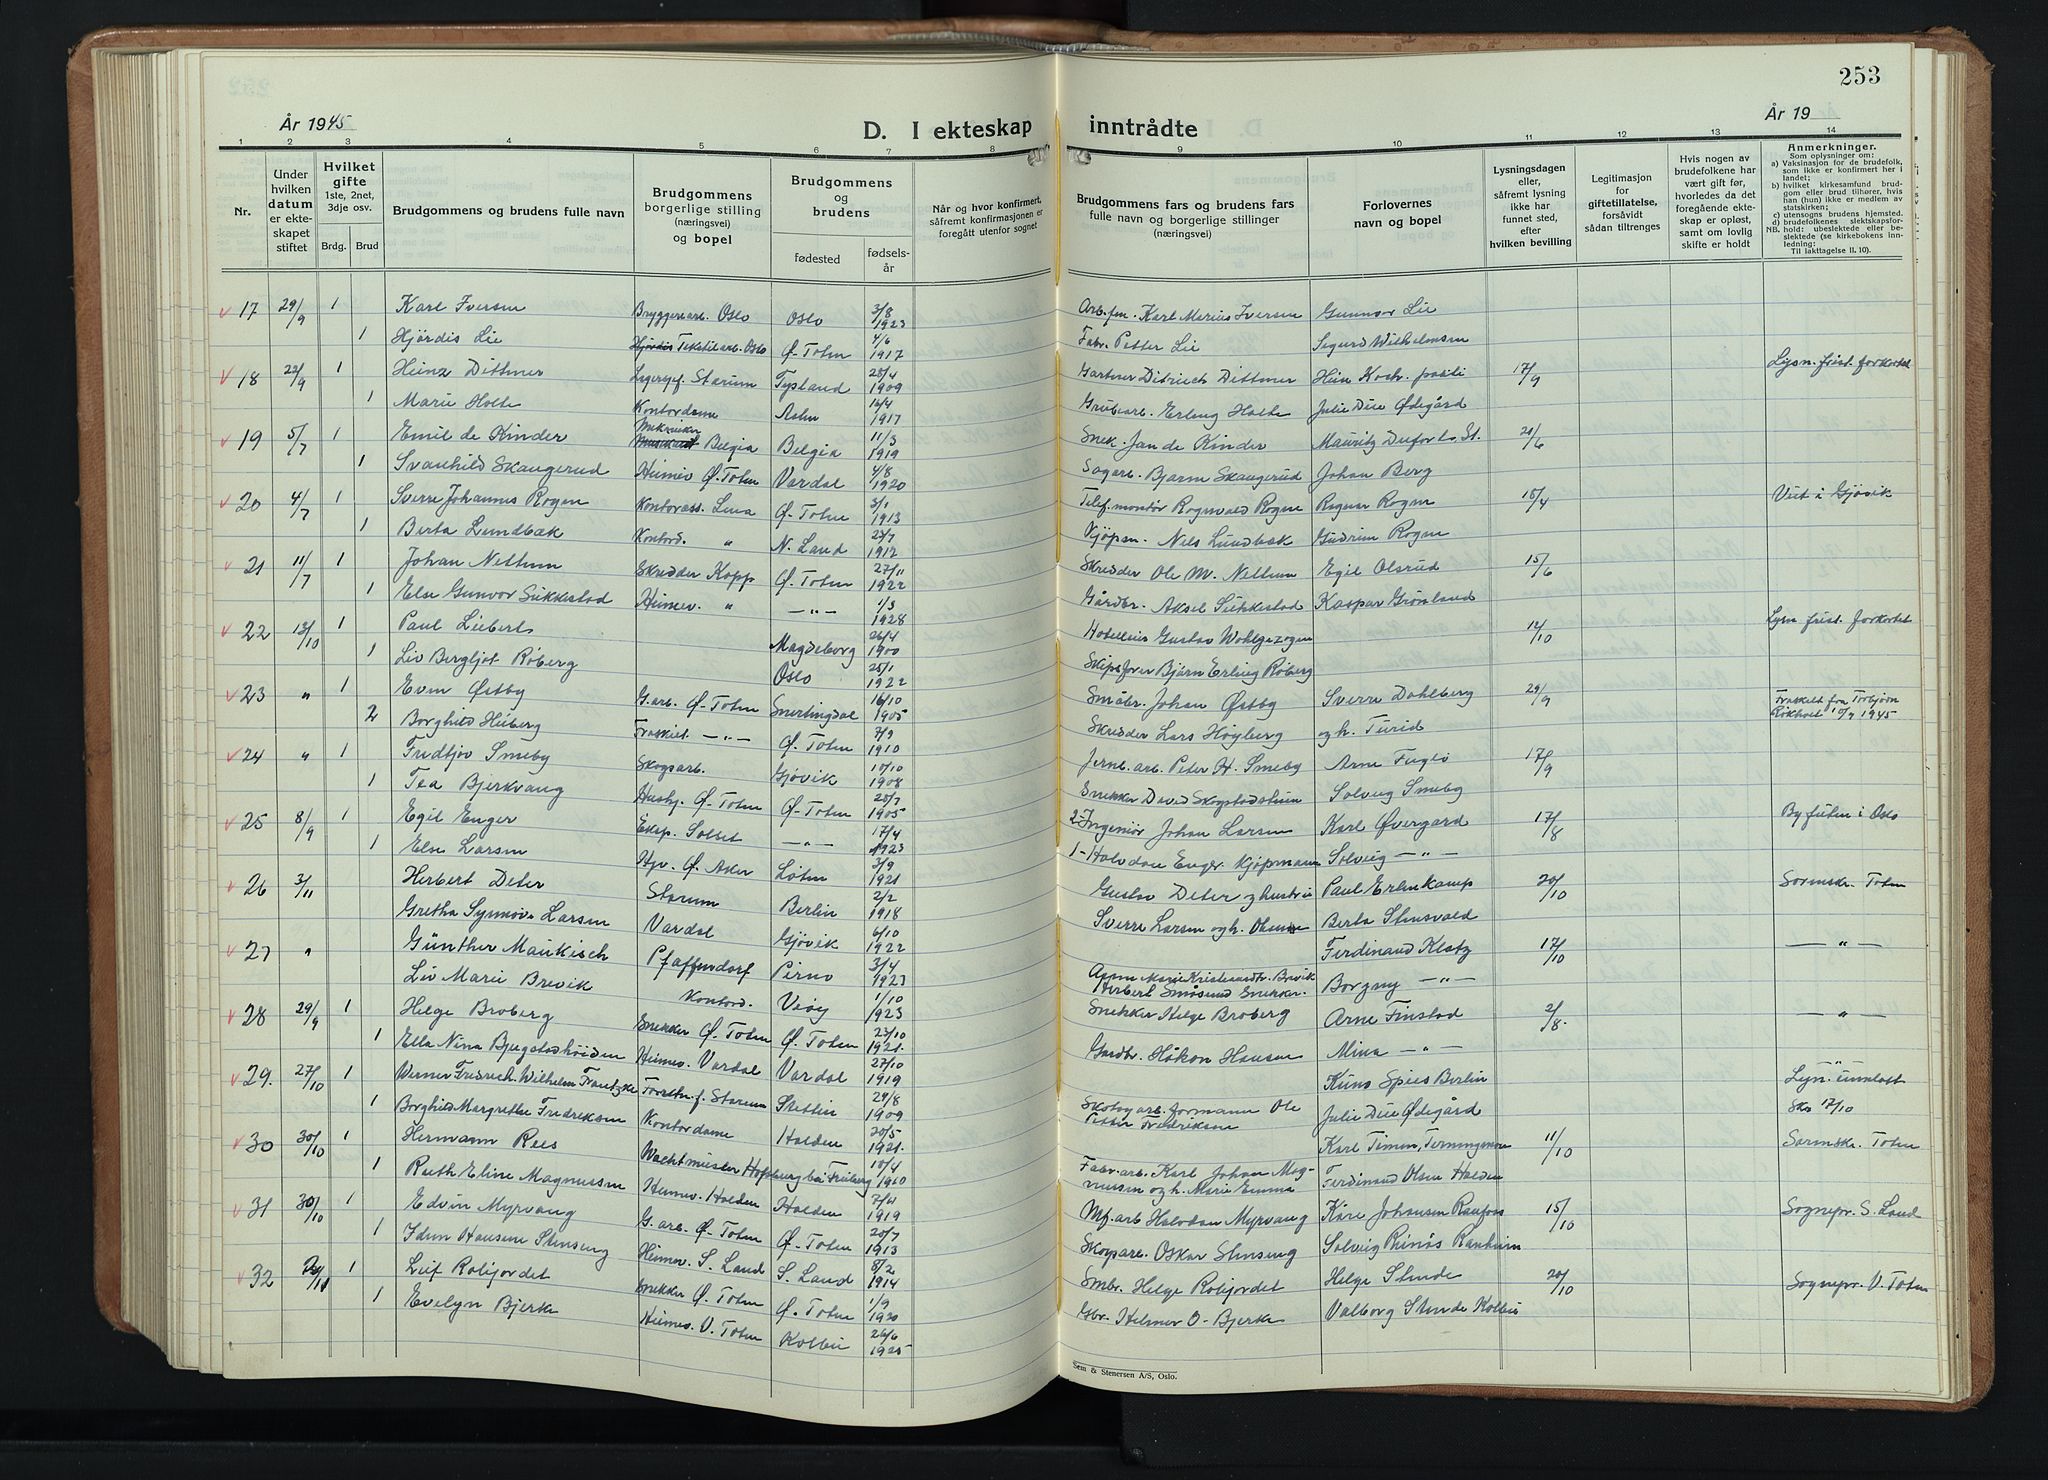 253
År 1945
D. I ekteskap inntrådte
År 19
1 2 3 4 5 6 7 8 9 10 11 12 13 14
Nr.
Under hvilken datum er ekteskapet stiftet
Hvilket gifte 1ste, 2net, 3dje osv.
Brdg. Brud
Brudgommens og brudens fulle navn
Brudgommens borgerlige stilling (næringsvei) og bopel
Brudgommens og brudens
fødested
fødselsår
Når og hvor konfirmert, såfremt konfirmasjonen er foregått utenfor sognet
Brudgommens fars og brudens fars fulle navn og borgerlige stillinger (næringsvei)
Forlovernes navn og bopel
Lysningsdagen eller, såfremt lysning ikke har funnet sted, efter hvilken bevilling
Legitimasjon for giftetillatelse, forsåvidt sådan tiltrenges
Hvis nogen av brudefolkene har vært gift før, hvorledes da det foregående ekteskap er opløst, samt om lovlig skifte er holdt
Anmerkninger.
Som oplysninger om:
a) Vaksinasjon for de brudefolk, som ikke er konfirmert her i landet;
b) hvilket kirkesamfund brudgom eller brud tilhører, hvis han (hun) ikke er medlem av statskirken;
c) utensogns brudens hjemsted.
d) brudefolkenes slektskapsforhold: ubeslektede eller beslektede (se kirkebokens innledning:
NB.
Til Iakttagelse II. 10).
17 29/9 1 Karl Iversen Bryggeriarb. Oslo Oslo 3/8 1923 Arb.fm. Karl Marius Iversen Gunnar Lie
1 Hjördis Lie Hjördis Tekstilarb. Oslo Ø-Toten 4/6 1917 Fabr. Petter Lie Sigurd Wilhelmsen
18 22/9 1 Heinz Dittmer Lagersjef. Starum Tyskland 28/4 1909 Gartner Ditriech Dittmer Hein Koch. 17/9 Lysn. frist. forkortet
1 Marie Holte Kontordame 16/4 1917 Grubearb. Erling Holte Julie Due Ødegård
19 5/7 1 Emil de Kinder Mekaniker Belgia Belgia 11/3 1919 Snek. Jan de Kinder 21/6
1 Svanhild Skaugerud Heimev Ø. Toten Vardal 4/8 1920 Sagarb. Bjarne Skaugerud Johan Berg
20 4/7 1 Sverre Johannes Rogne Kontorass. Lena Ø-Toten 3/1 1913 Telef.montör Rognvald Rogne Ragnar Rogne 18/4 Viet i Gjøvik
1 Berta Lundbæk Kontord. " N. Land 23/7 1912 Kjöpm. Nils Lundbæk Gudrun Rogne
21 11/7 1 Johan Nettum Skredder Kapp Ø-Toten 27/11 1922 Skredder Ole M. Nettum Egil Olsrud 15/6
1 Else Gunvor Sukkestad Heimev. " —"— 1/3 1928 Gårdbr. Aksel Sukkestad Kaspar Grönland
22 13/10 1 Paul Liebert Magdeborg 26/4 1900 Hotelleier Gustav Wohlgezogen 12/10 Lysn frist. forkortet
1 Liv Bergljot Röberg Oslo 25/1 1922 Skipsförer Björn Erling Röberg
23 " 1 Even Østby G.arb. Ø-Toten Snertingdal 16/10 1905 Småbr. Johan Østby Sverre Dahlberg 29/9 Fraskilt fra Torbjørn 1945
2 Borghild Höiberg Fraskilt —"— Ø-Toten 7/9 1910 Skredder Lars Höyberg og h. Turid
24 " 1 Fridtjov Smeby Skogsarb. Gjövik 10/10 1908 Jernb.arb. Peter H. Smeby Arne Fuglö 17/9
1 Tea Bjerkvang Hushj. Ø-Toten Ø-Toten 20/7 1905 Snekker David Skogstadstuen Solveig Smeby
25 8/9 1 Egil Enger Eksp. —"— 17/4 1923 2-Ingeniör Johan Larsen Karl Øvergård 17/8 Byfuten i Oslo
1 Else Larsen Hjv. Ø. Aker Löten 3/9 1921 1-Halvdan Enger. Kjöpmann Solveig —"—
26 3/11 Herbert Deter Starum Berlin 2/2 1918 Gustav Deter og hustru Paul Erlenkamp 20/10 Sorenskr. Toten
Gretha Synnöve Larsen Vardal Gjövik 6/10 1922 Sverre Larsen og h. Berta Stensvald
27 " Günther Maukisch Pfaffendorf Pirna 3/4 1923 Ferdinand Klatz 17/10 —"—
Liv Marie Brevik Kontord. Veöy 1/10 1923 Borgny —"—
28 29/9 1 Helge Broberg Snekker Ø. Toten Ø. Toten 23/10 1921. Snekker Helge Broberg Arne Finstad 2/8. —"—
1 Ella Nina Bjugstadhöiden Heimev. Vardal Vardal 27/10 1919 Gardbr. Håkon Hansen Mina —"—
29. 27/10 1 Werner Fridrich. Wilhelm Frantzke Starum Stettin 29/8 1909 Kuno Spies Berlin Lysn. unnlatt
1 Borghild Margrethe Fredriksen Kontordame Halden 20/5 1921. Skotøyarb. formann Ole Petter Fredriksen Julie Due Ødegård 17/10
30 30/10 1 Hermann Rees Wachtmeister Hofsberg bei Freiberg 10/4 1910 Karl Timm, 11/10 Sorenskr. Toten
1 Ruth Eline Magnussen Heimev. Halden Halden 7/4 1919 Fabr.arb. Karl Johan Magnussen og h. Marie Emma Ferdinand Olsen Halden
31 30/10 1 Edvin Myrvang G.arb. Ø-Toten Ø-Toten 20/7 1913 Mf.arb Halvdan Myrvang Kåre Johansen Raufoss 15/10 Sognepr. S. Land
1 Idun Hansine Stenseng Heimev. S. Land S. Land 8/2 1914 Skogsarb. Oskar Stenseng Solveig
32 1 Leif Rolijordet Snekker Ø-Toten Ø-Toten 1/9 1920 Smbr. Helge Rolijordet Helge Stende 20/10 Sognepr. V. Toten
1 Evelyn Bjerke Heimev. V. Toten Kolbu 26/6 1925 Gbr. Helmer O. Bjerke Valborg Stende Kolbu
Sem & Stenersen A/S, Oslo.